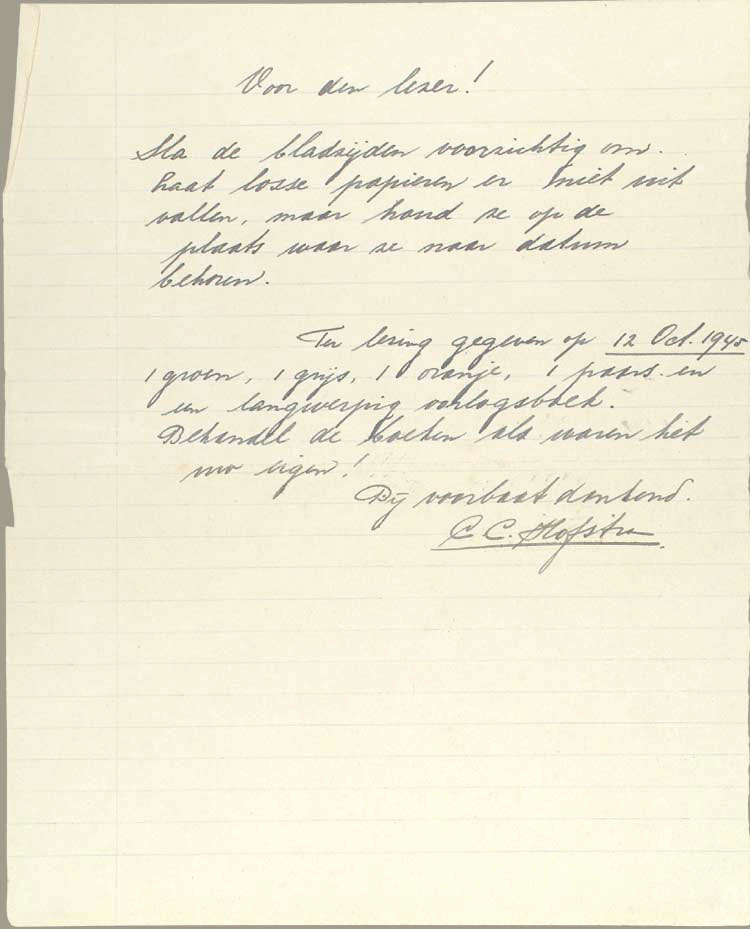 Voor den lezer!
Sla de bladzijden voorzichtig om.
Laat losse papieren er niet uit
vallen, maar houd ze op de
plaats waar ze naar datum
behoren.
Ter lezing gegeven op 12 Oct. 1945
1 groen, 1 grijs, 1 oranje, 1 paars en
een langwerpig oorlogsboek.
Behandel de boeken als waren het
uw eigen!
Bij voorbaat dankend.
C. C. Hofstra